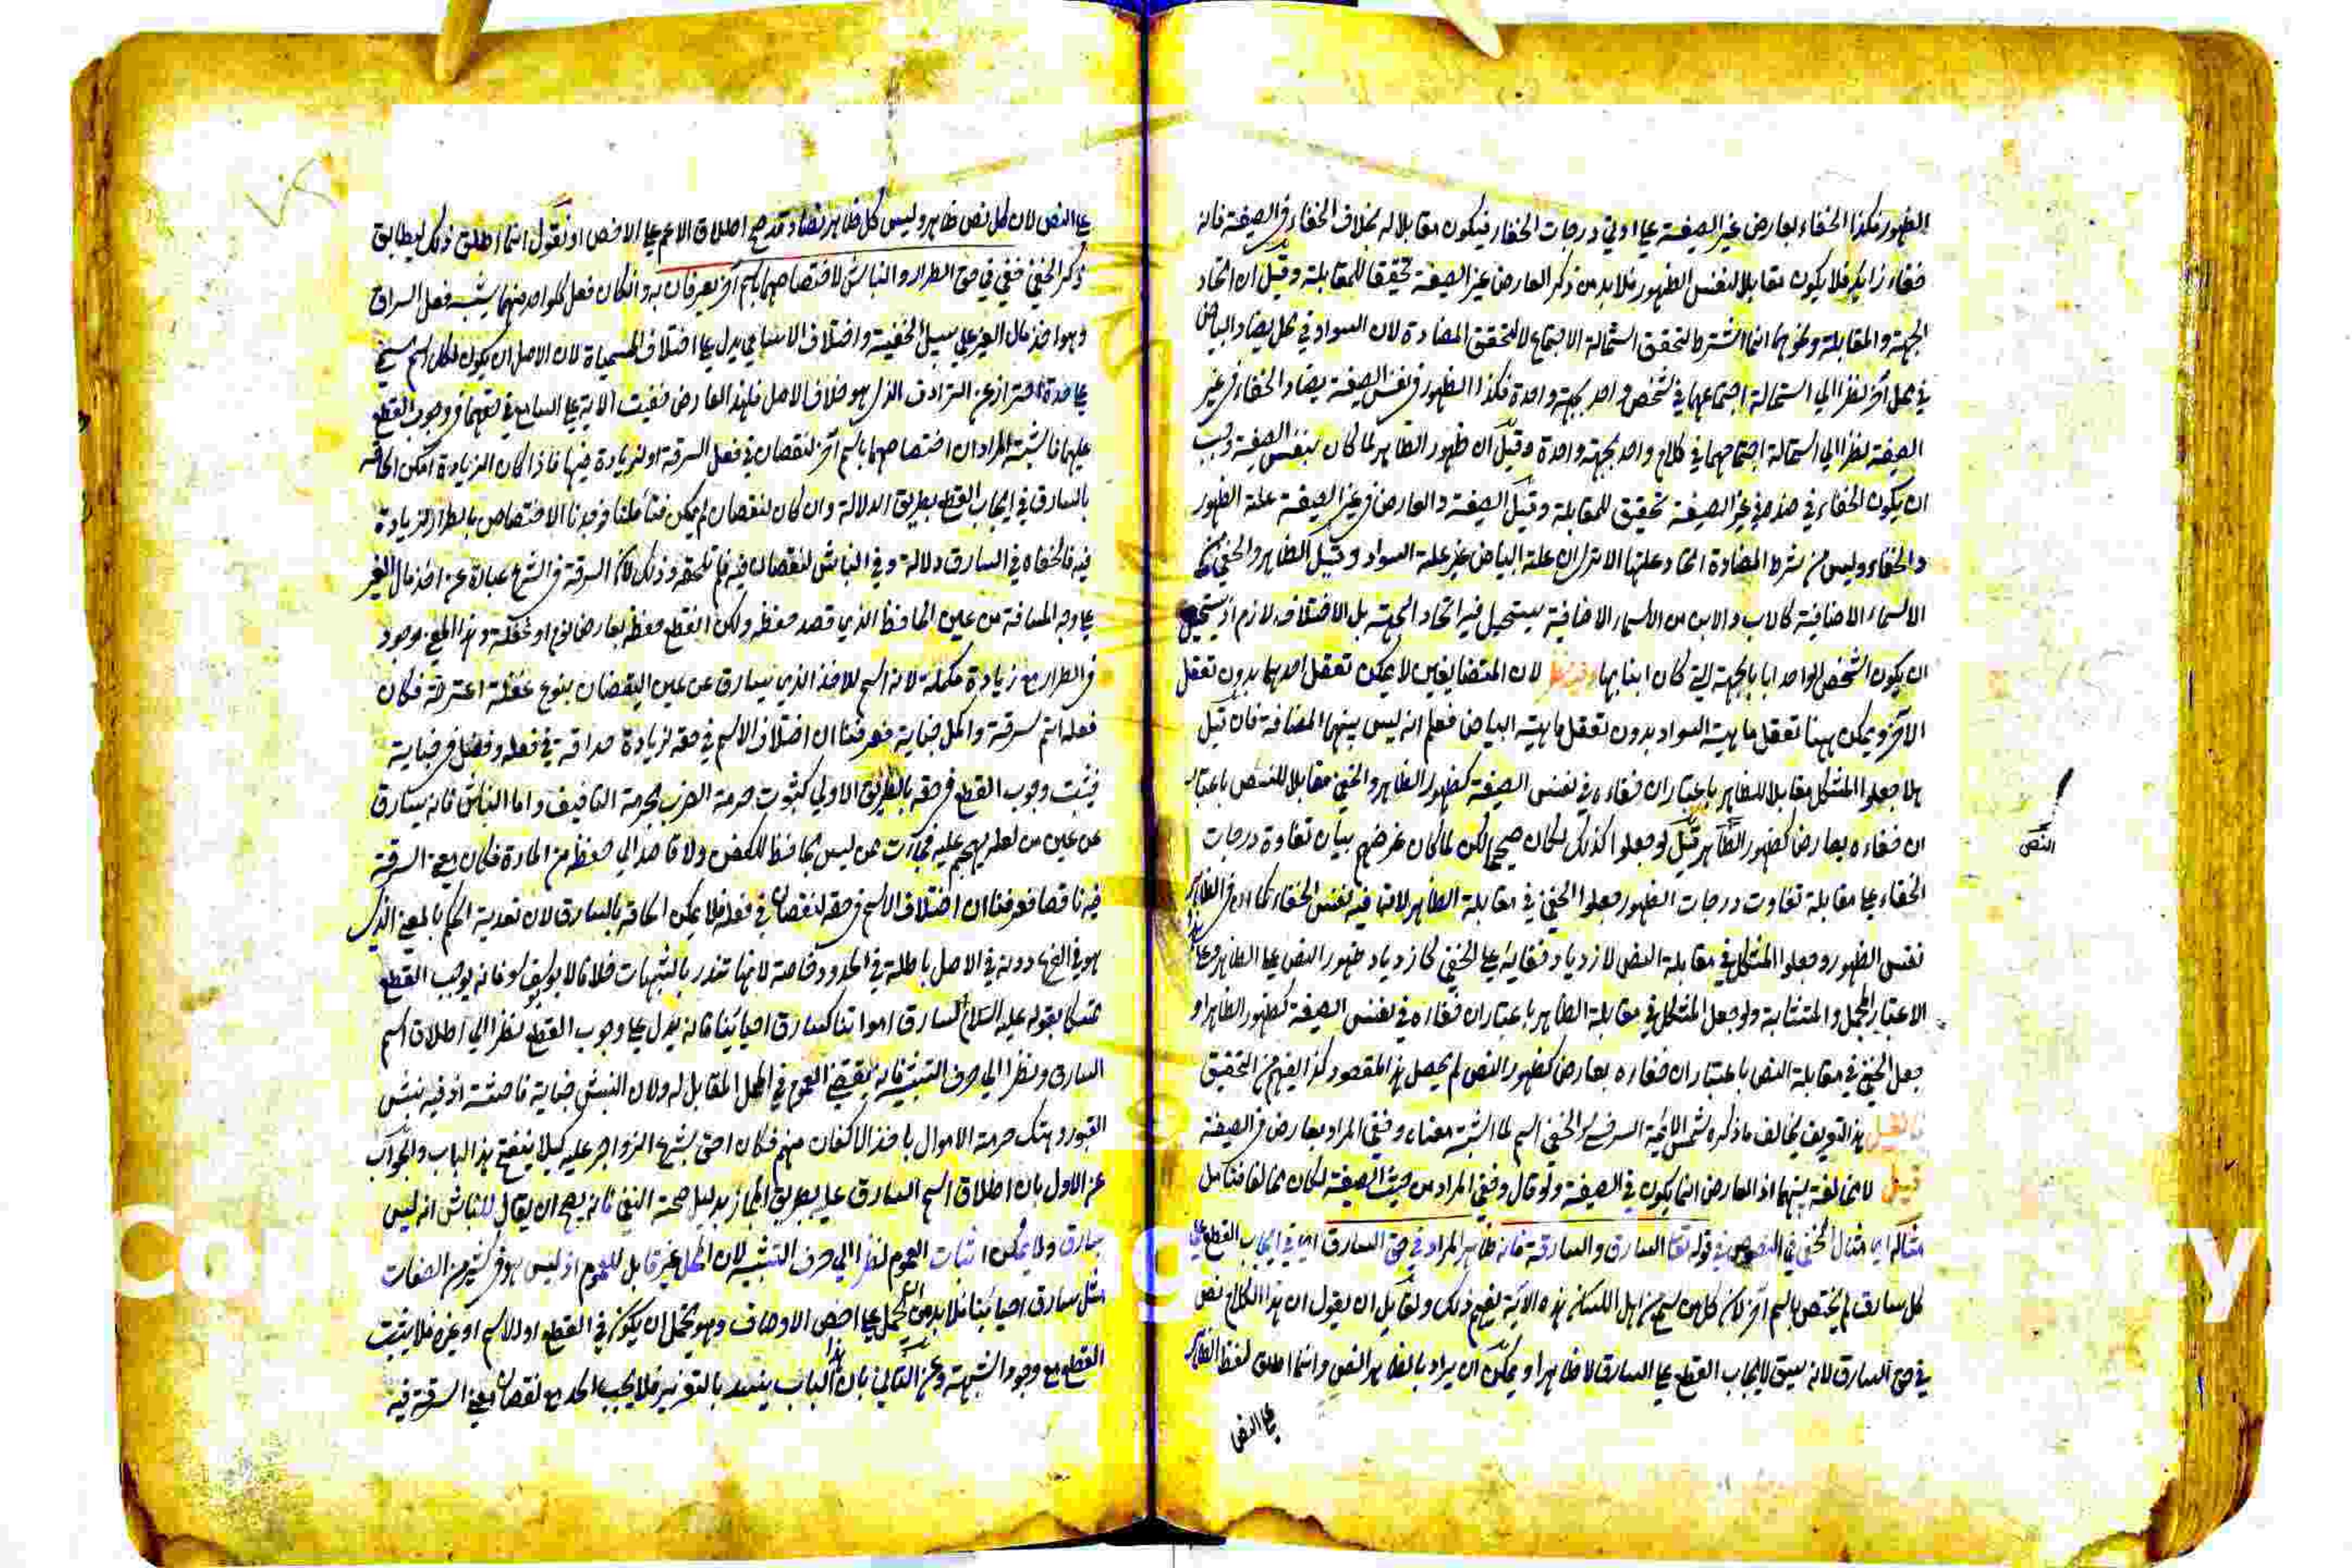 الظهور فكذا الخفاء بعارض غير الصيغة على ادنى درجات الخفاء فيكون مقابلا له بخلاف الخفاء في الصيغة فانه
خفاء زايد فلا يكون مقابلا لنفس الظهور فلا بد من ذكر العارض غير الصيغة تحقيقا للمقابلة وقيل ان اتحاد
الجهة والمقابلة ونحوهما انما اشترط لتحقق استحالة الاجتماع لا لتحقق المضادة لان السواد في محل يضاد البياض
في محل آخر نظرا الي استحالة اجتماعهما في شخص واحد بجهة واحدة فكذا الظهور في نفس الصيغة يضاد الخفاء في غير
الصيغة نظرا الي استحالة اجتماعهما في كلام واحد بجهة واحدة وقيل ان ظهور الظاهر لما كان بنفس الصيغة وجب
ان يكون الخفاء في ضده في غير الصيغة تحقيق للمقابلة وقيل الصيغة والعارض في غير الصيغة علة الظهور
والخفاء وليس من شرط المضادة اتحاد علتها الا ترى ان علة البياض غير علة السواد وقيل الظاهر والخفي من
الاسماء الاضافية كالاب والابن من الاسماء الاضافية يستحيل فيه اتحاد الجهة بل الاختلاف لازم اذ يستحيل
ان يكون الشخص الواحد ابا بالجهة التي كان ابنا بها وفيه نظر لان المتضايفين لا يمكن تعقل احدهما بدون تعقل
الآخر ويمكن ههنا تعقل ماهية السواد بدون تعقل ماهية البياض فعلم انه ليس بينهما المضافة فان قيل
هلا جعلوا المشكل مقابلا للظاهر باعتبار ان خفاءه في نفس الصيغة كظهور الظاهر والخفي مقابلا للنص باعتبار
ان خفاءه بعارض كظهور الظاهر قيل لو جعلوا كذلك لكان صحيحا لكن لما كان غرضهم بيان تفاوة درجات
النص
الخفاء على مقابلة تفاوت درجات الظهور جعلوا الخفي في مقابلة الظاهر لانه فيه نفس الخفاء كما ان في الظاهر
نفس الظهور وجعلوا المشكل في مقابلة النص لازدياد خفائه على الخفي كازدياد ظهور النص على الظاهر وعلى هذا
الاعتبار المجمل والمتشابه ولو جعل المشكل في مقابلة الظاهر باعتبار ان خفاءه في نفس الصيغة كظهور الظاهر او
جعل الخفي في مقابلة النص باعتبار ان خفاءه بعارض كظهور النص لم يحصل هذا المقصود كذا افهم من التحقيق
فان قيل هذا التعريف يخالف ما ذكره شمس الائمة السرخسي الخفي اسم لما اشتبه معناه وخفي المراد بعارض في الصيغة
قيل لا مخالفة بينهما اذ العارض انما يكون في الصيغة ولو قال وخفي المراد من حيث الصيغة لكان مخالفا فتأمل
مثاله اي مثال الخفي في النصوص في قوله تعالى السارق والسارقة فانه ظاهر المراد في حق السارق اي في ايجاب القطع على
كل سارق لم يختص باسم آخر لان كل من سمع من اهل اللسان هذه الآية يفهم ذلك ولقايل ان يقول ان هذا الكلام نص
في حق السارق لانه سيق لايجاب القطع على السارق لا ظاهرا ويمكن ان يراد بالظاهر النص وانما اطلق لفظ الظاهر
على النص
على النص لان كل نص ظاهر وليس كل ظاهر نصا وقد صح اطلاق الاعم على الاخص او نقول انما اطلق ذلك ليطابق
ذكر الخفي خفي في حق الطرار والنباش لاختصاصهما باسم آخر يعرفان به وان كان فعل كل واحد منهما يشبه فعل السارق
وهو اخذ مال الغير على سبيل الخفية واختلاف الاسامي يدل على اختلاف المسمياة لان الاصل ان يكون لكل اسم مسمى
على حدة احتراز عن الترادف الذي هو خلاف الاصل فلهذا العارض خفيت الآية على السامع في حقهما في وجوب القطع
عليهما فاشتبه المراد ان اختصاصهما باسم آخر لنقصان في فعل السرقة او لزيادة فيها فاذا كان الزيادة امكن الحاقه
بالسارق في ايجاب القطع بطريق الدلالة وان كان لنقصان لم يكن فتأملنا فوجدنا الاختصاص بالطرار لزيادة
فيه فالحقناه في السارق دلالة وفي النباش لنقصان فيه فلم نلحقه وذلك لان السرقة في الشرع عبارة عن اخذ مال الغير
على وجه المسافة من عين الحافظ الذي قصد حفظه ولكن انقطع حفظه بعارض نوم او غفلة وهذا المعنى موجود
في الطرار مع زيادة مكملة لانه اسم للآخذ الذي يسارق عن عين اليقضان بنوع غفلة اعترته فكان
فعله اتم سرقة واكمل جناية فعرفنا ان اختلاف الاسم في حقه لزيادة حذاقة في فعله وفضل في جناية
فيثبت وجوب القطع في حقه بالطريق الاولى كثبوت حرمة الضرب بحرمة التافيف واما النباش فانه يسارق
عن عين من لعله يهجم عليه ممن ليس بحافظ للكفن ولا قاصد الي حفظه من المارة فكان معنى السرقة
فيه ناقصا فعرفنا ان اختلاف الاسم في حقه لنقصان في فعله فلا يمكن الحاقه بالسارق لان تعدية الحكم بالمعنى الذي
هو في الفرع دونه في الاصل باطلة في الحدود خاصة لانها تندرء بالشبهات خلافا لابو يوسف فانه يوجب القطع
متمسكا بقوله عليه السلام سارق امواتنا كسارق احيائنا فانه يدل على وجوب القطع نظرا الي اطلاق اسم
السارق ونظر الي حرف التشبيه فانه يقتضي العموم في المحل المقابل له ولان النبش جناية فاحشة اذ فيه نبش
القبور وهتك حرمة الاموال باخذ الاكفان منهم فكان احق بشرع الزواجر عليه كيلا ينفتح هذا الباب والجواب
عن الاول بان اطلاق اسم السارق عليه بطريق المجاز بدليل صحة النفي فانه يصح ان يقال للنباش انه ليس
بسارق ولا يمكن اثبات العموم نظرا الي حرف التشبيه لان المحل غير قابل للعموم اذ ليس هو في كثير من الصفات
مثل سارق احيائنا فلا بد من الحمل على اخص الاوصاف وهو يحتمل ان يكون في القطع او الاسم او غيره فلا يثبت
القطع مع وجود الشبهة وعن الثاني بان هذا الباب ينسد بالتعزير فلا يجب الحد مع نقصان معنى السرقة فيه